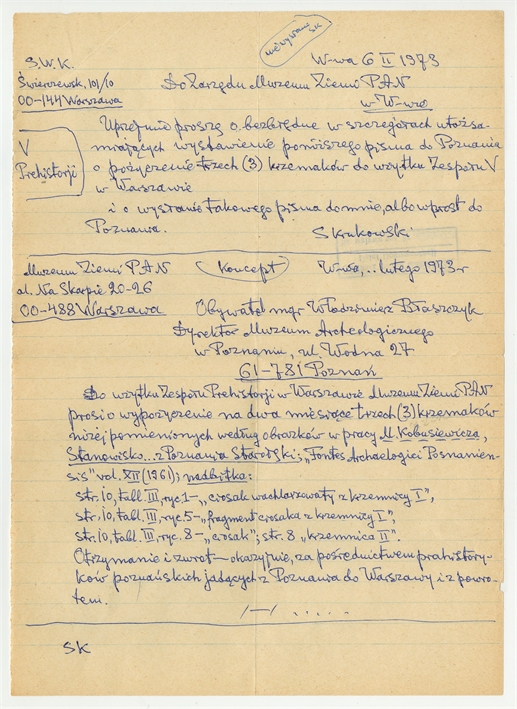 niewysłane
SK
S.W.K.
W-wa 6 II 1973
Świerszewsk, 101/10
00-144 Warszawa
Do Zarządu Muzeum Ziemi PAN
w W-wie
V
Prehistorji
Uprzejmie proszę o bezbłędne w szczegółach utożsa-
miających wystawienie poniższego pisma do Poznania
o pożyczenie trzech (3) krzemaków do użytku Zespołu V
w Warszawie
i o wysłanie takowego pisma do mnie, albo wprost do
Poznania.
S Krukowski
Muzeum Ziemi PAN
Koncept
W-wa, .. lutego 1973 r
al. Na Skarpie 20-26
00-488 Warszawa
Obywatel mgr Włodzimierz Błaszczyk
Dyrektor Muzeum Archeologicznego
w Poznaniu, ul. Wodna 27
61-781 Poznań
Do użytku Zespołu Prehistorji w Warszawie Muzeum Ziemi PAN
prosi o wypożyczenie na dwa miesiące trzech (3) krzemaków
niżej pomienionych według obrazków w pracy M. Kobusiewicza,
Stanowisko ... z Poznania Starołęki; „Fontes Archaeologici Posnanien-
sis" vol. XII (1961); nadbitka:
str. 10, tabl. III, ryc. 1 – „ciosak wachlarzowaty z krzemnicy I",
str. 10, tabl. III, ryc. 5 – „fragment ciosaka z krzemnicy I",
str. 10, tabl. III, ryc. 8 – „ciosak"; str. 8 „krzemnica II".
Otrzymanie i zwrot – okazyjnie, za pośrednictwem prahistory-
ków poznańskich jadących z Poznania do Warszawy i z powro-
tem.
/—/ .....
SK